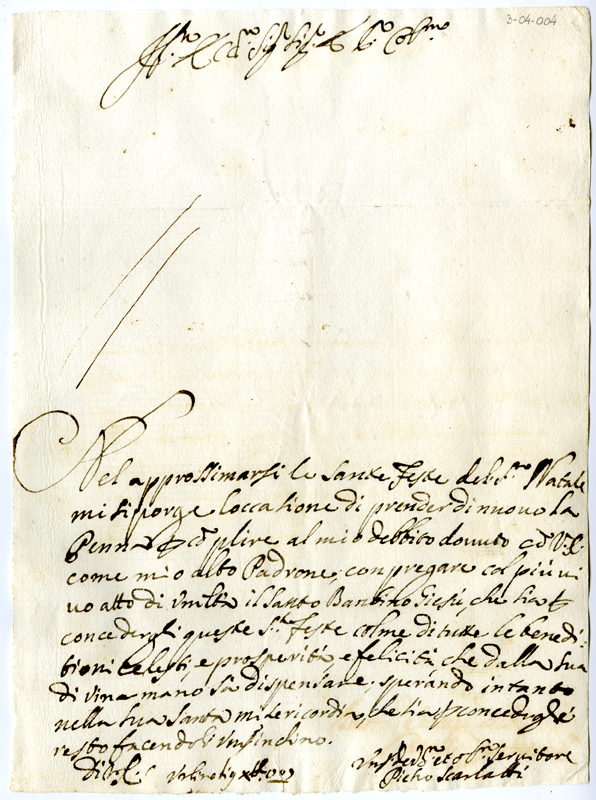 3-04-004
Ill.mo
Nel approssimarsi le sante feste del S.mo Natale
mi si porge loccatione di prender di nuovo la
Penna cõplire al mio debbito dovuto cõ V.S.
come mio alto Padrone, con pregare col più vi
vo atto di Vmiltà il Santo Banbino Giesù che sia
concedergli queste S.te feste colme di tutte le benedi-
tioni celesti, e prosperità, e felicità che dalla sua
divina mano sà dispensare, sperando intanto
nella sua santa misericordia, che sia
resto facendoli Vnsinchino.
di V.S.
servitore
Pietro Scarlatti